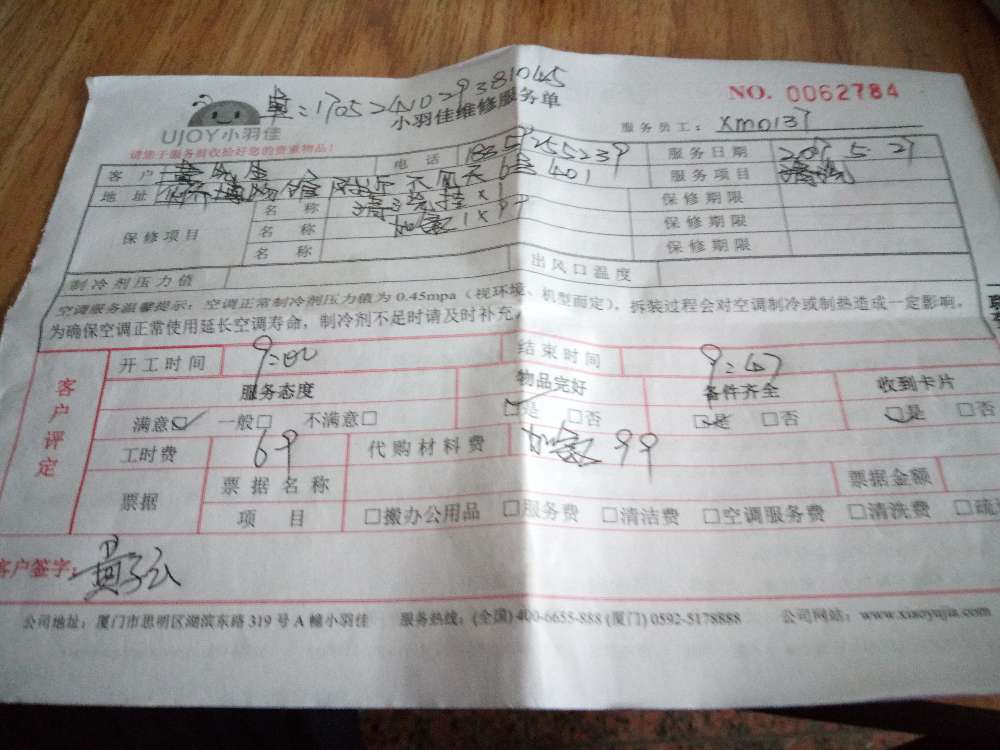 单:1705241029381045
NO. 0062784
UJOY小羽佳
小羽佳维修服务单
服务员工: xm0137
请您于服务前收捡好您的贵重物品!
客户 电话 服务日期
地址 401 服务项目 清洗
保修项目 名称 清洗挂x1 保修期限
名称 保修期限
名称 保修期限
制冷剂压力值 出风口温度
空调服务温馨提示:空调正常制冷剂压力值为0.45mpa(视环境、机型而定),拆装过程会对空调制冷或制热造成一定影响。
为确保空调正常使用延长空调寿命,制冷剂不足时请及时补充。
客户评定
开工时间 9:00 结束时间 9:47
服务态度 物品完好 备件齐全 收到卡片
满意□ 一般□ 不满意□ □是 □否 □是 □否 □是 □否
工时费 69 代购材料费 99
票据 票据名称 票据金额
项目 □搬办公用品 □服务费 □清洁费 □空调服务费 □清洗费 □疏
客户签字:
公司地址:厦门市思明区湖滨东路319号A幢小羽佳 服务热线:(全国)400-6655-888 (厦门) 0592-5178888 公司网站:www.xiaoyujia.com